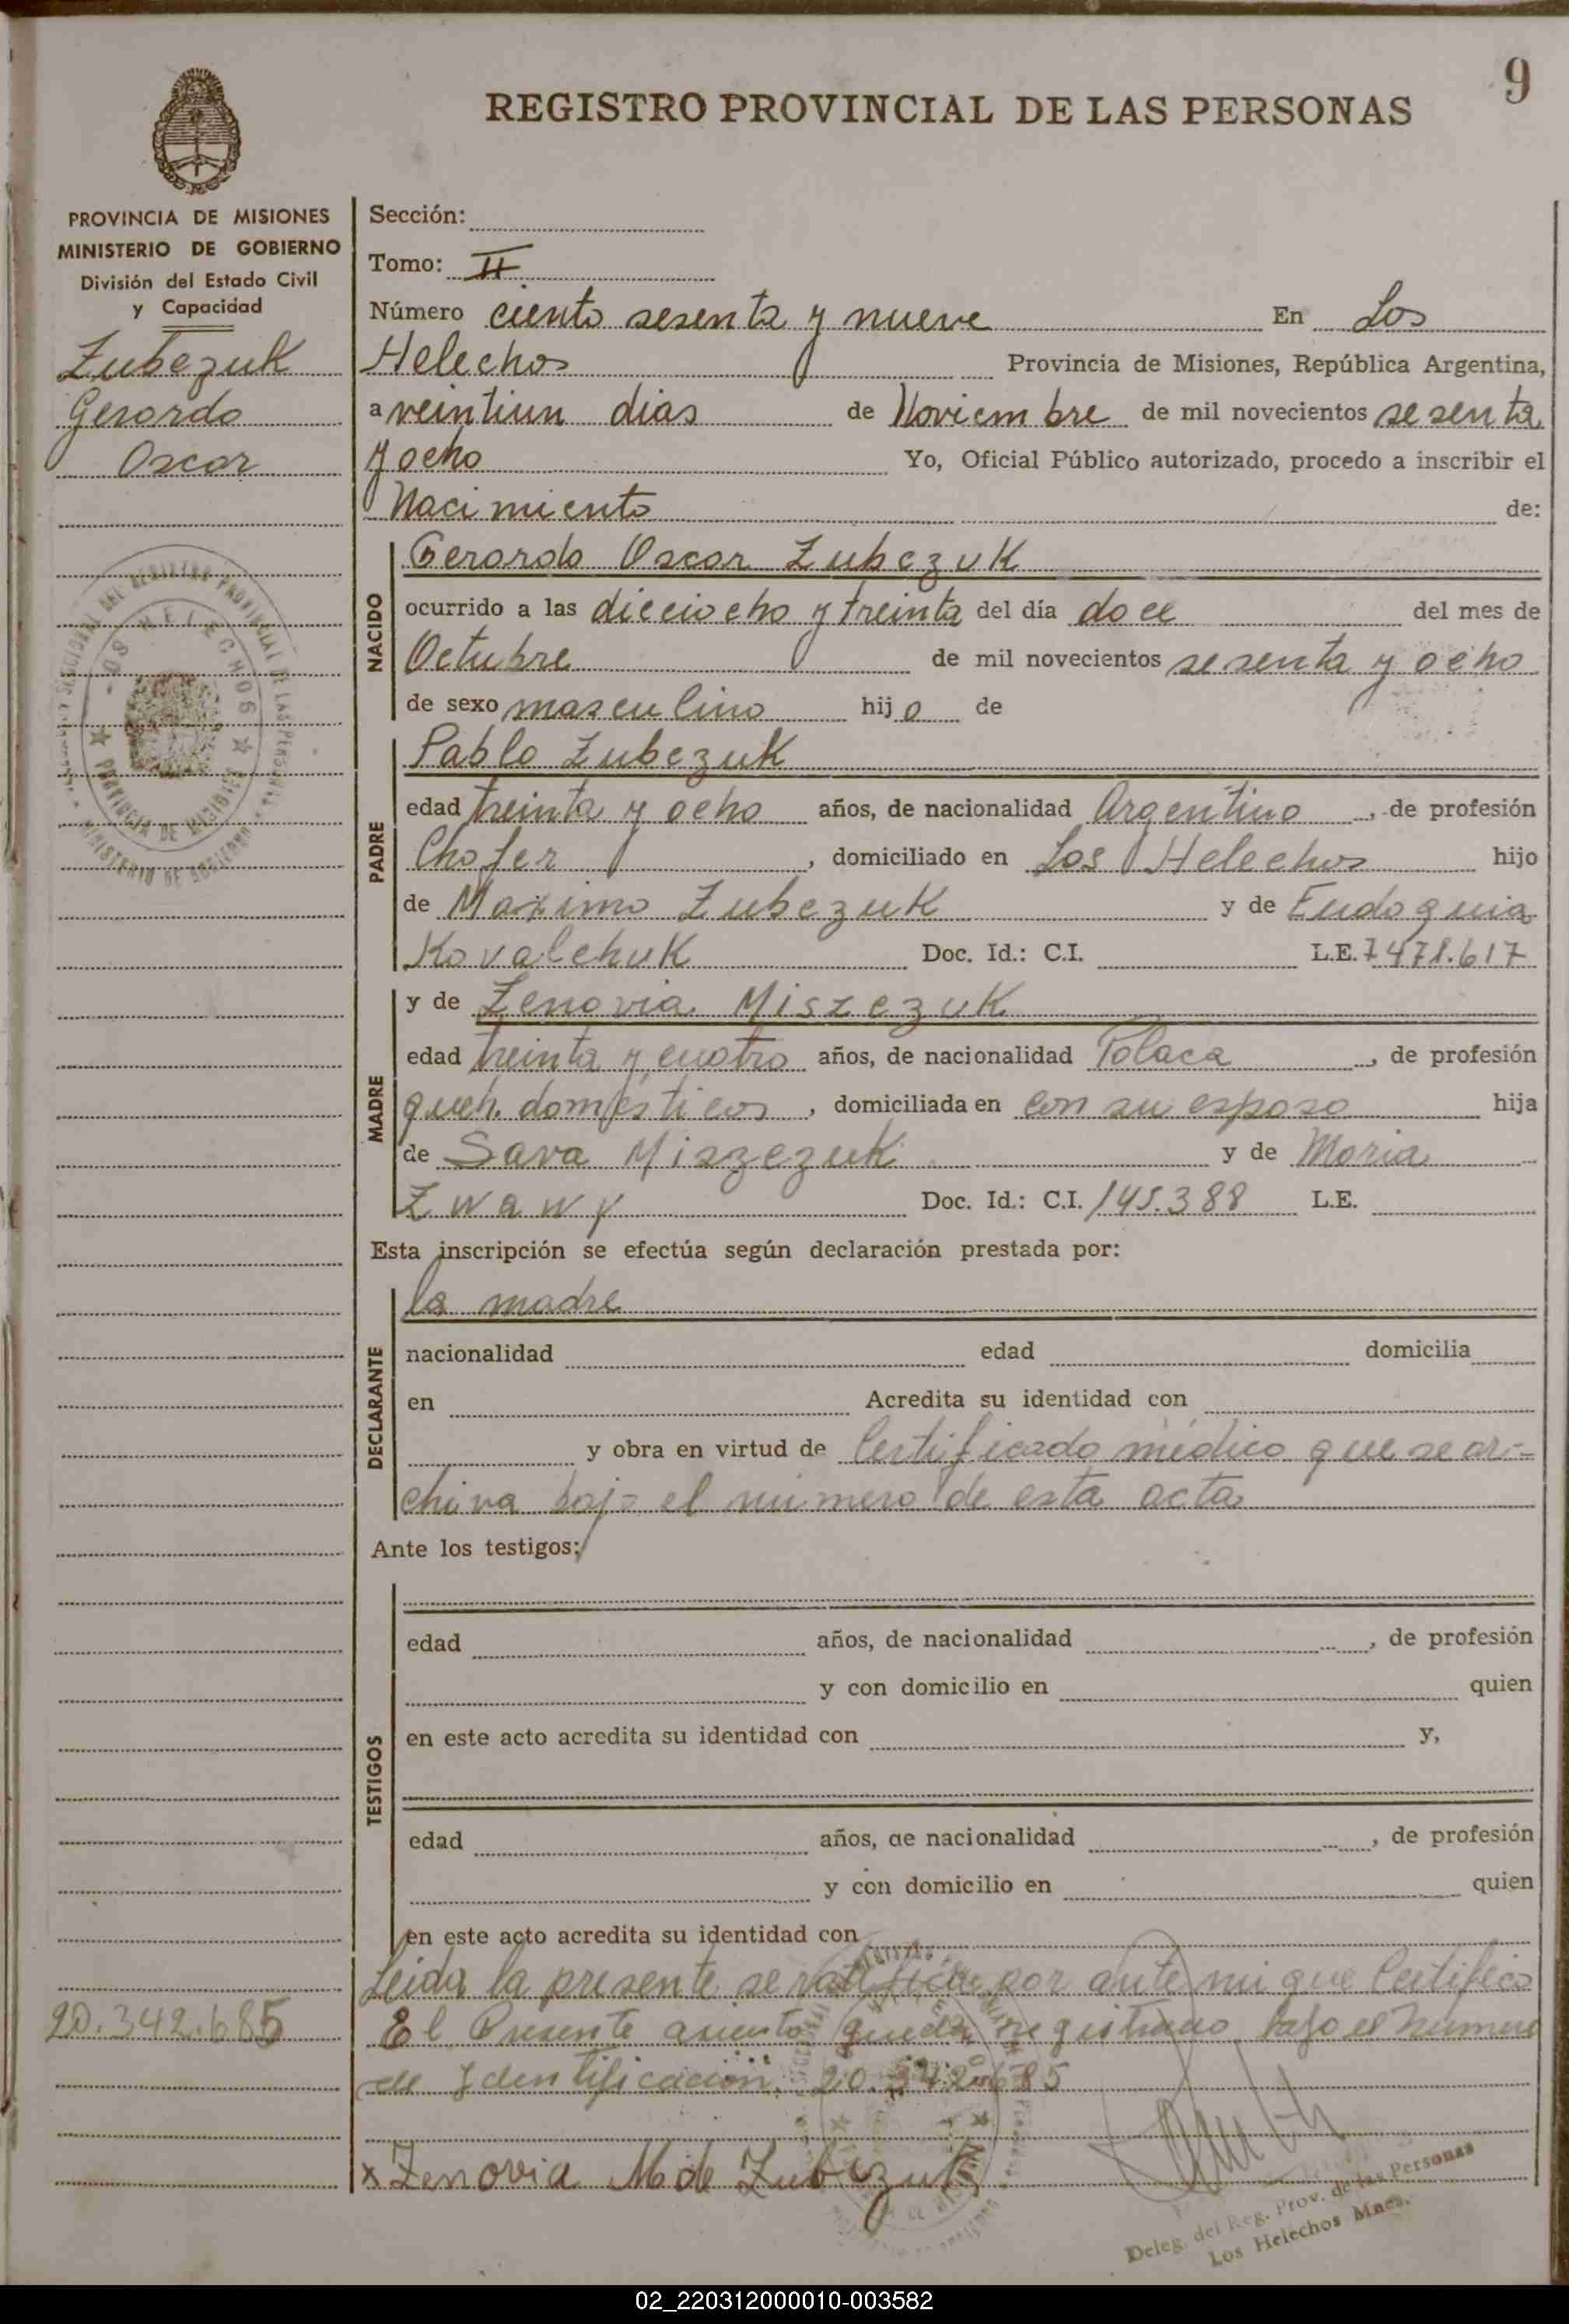 9
REGISTRO PROVINCIAL DE LAS PERSONAS
PROVINCIA DE MISIONES
MINISTERIO DE GOBIERNO
División del Estado Civil
y Capacidad
Zubczuk
Gerardo
Oscar
Sección:
Tomo: II
Número ciento sesenta y nueve En Los
Helechos Provincia de Misiones, República Argentina,
a veintiun dias de Noviembre de mil novecientos sesenta
y ocho Yo, Oficial Público autorizado, procedo a inscribir el
Nacimiento de:
NACIDO
Gerardo Oscar Zubczuk
ocurrido a las dieciocho y treinta del día doce del mes de
Octubre de mil novecientos sesenta y ocho
de sexo masculino hijo de
PADRE
Pablo Zubczuk
edad treinta y ocho años, de nacionalidad Argentino, de profesión
Chofer, domiciliado en Los Helechos hijo
de Maximo Zubczuk y de Eudoquia
Kovalchuk Doc. Id.: C.I. L.E. 7471.617
MADRE
y de Zenovia Miszczuk
edad treinta y cuatro años, de nacionalidad Polaca, de profesión
queh. domésticos, domiciliada en con su esposo hija
de Sava Miszczuk y de Maria
Zwawy Doc. Id.: C.I. 145.388 L.E.
Esta inscripción se efectúa según declaración prestada por:
DECLARANTE
la madre
nacionalidad edad domicilia
en Acredita su identidad con
y obra en virtud de Certificado médico que se ar-
chiva bajo el número de esta acta
Ante los testigos:
TESTIGOS
edad años, de nacionalidad , de profesión
y con domicilio en quien
en este acto acredita su identidad con y,
edad años, de nacionalidad , de profesión
y con domicilio en quien
en este acto acredita su identidad con
Leida la presente se ratifica por ante mi que Certifico
20.342.685
El Presente asiento queda registrado bajo el numero
de Identificación 20.342.685
x Zenovia M de Zubczuk
Deleg. del Reg. Prov. de las Personas
Los Helechos Mnes.
02_220312000010-003582